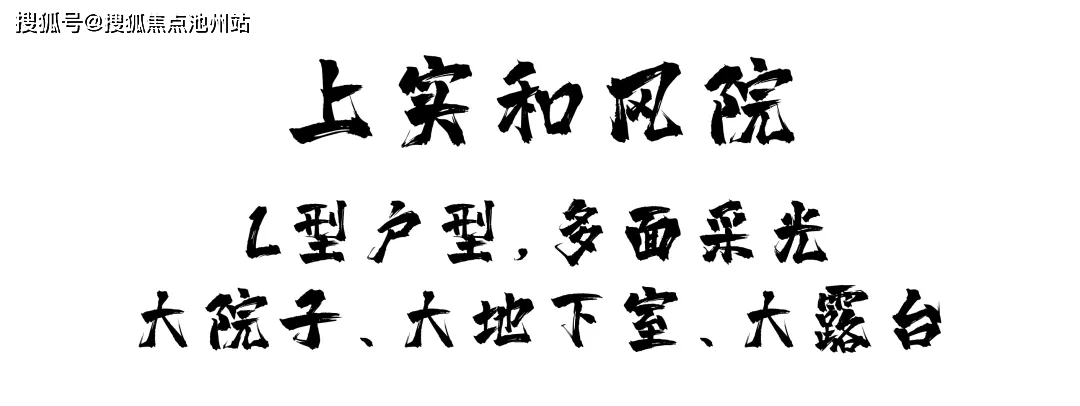 搜狐号@搜狐焦点池州站
上实和风院
L型户型,多面采光
大院子、大地下室、大露台